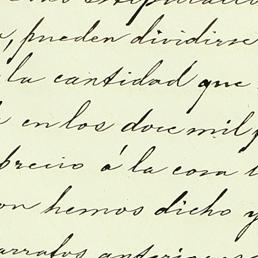 , pueden dividirse
la cantidad que
en los doce mil
precio á la cosa
hemos dicho y